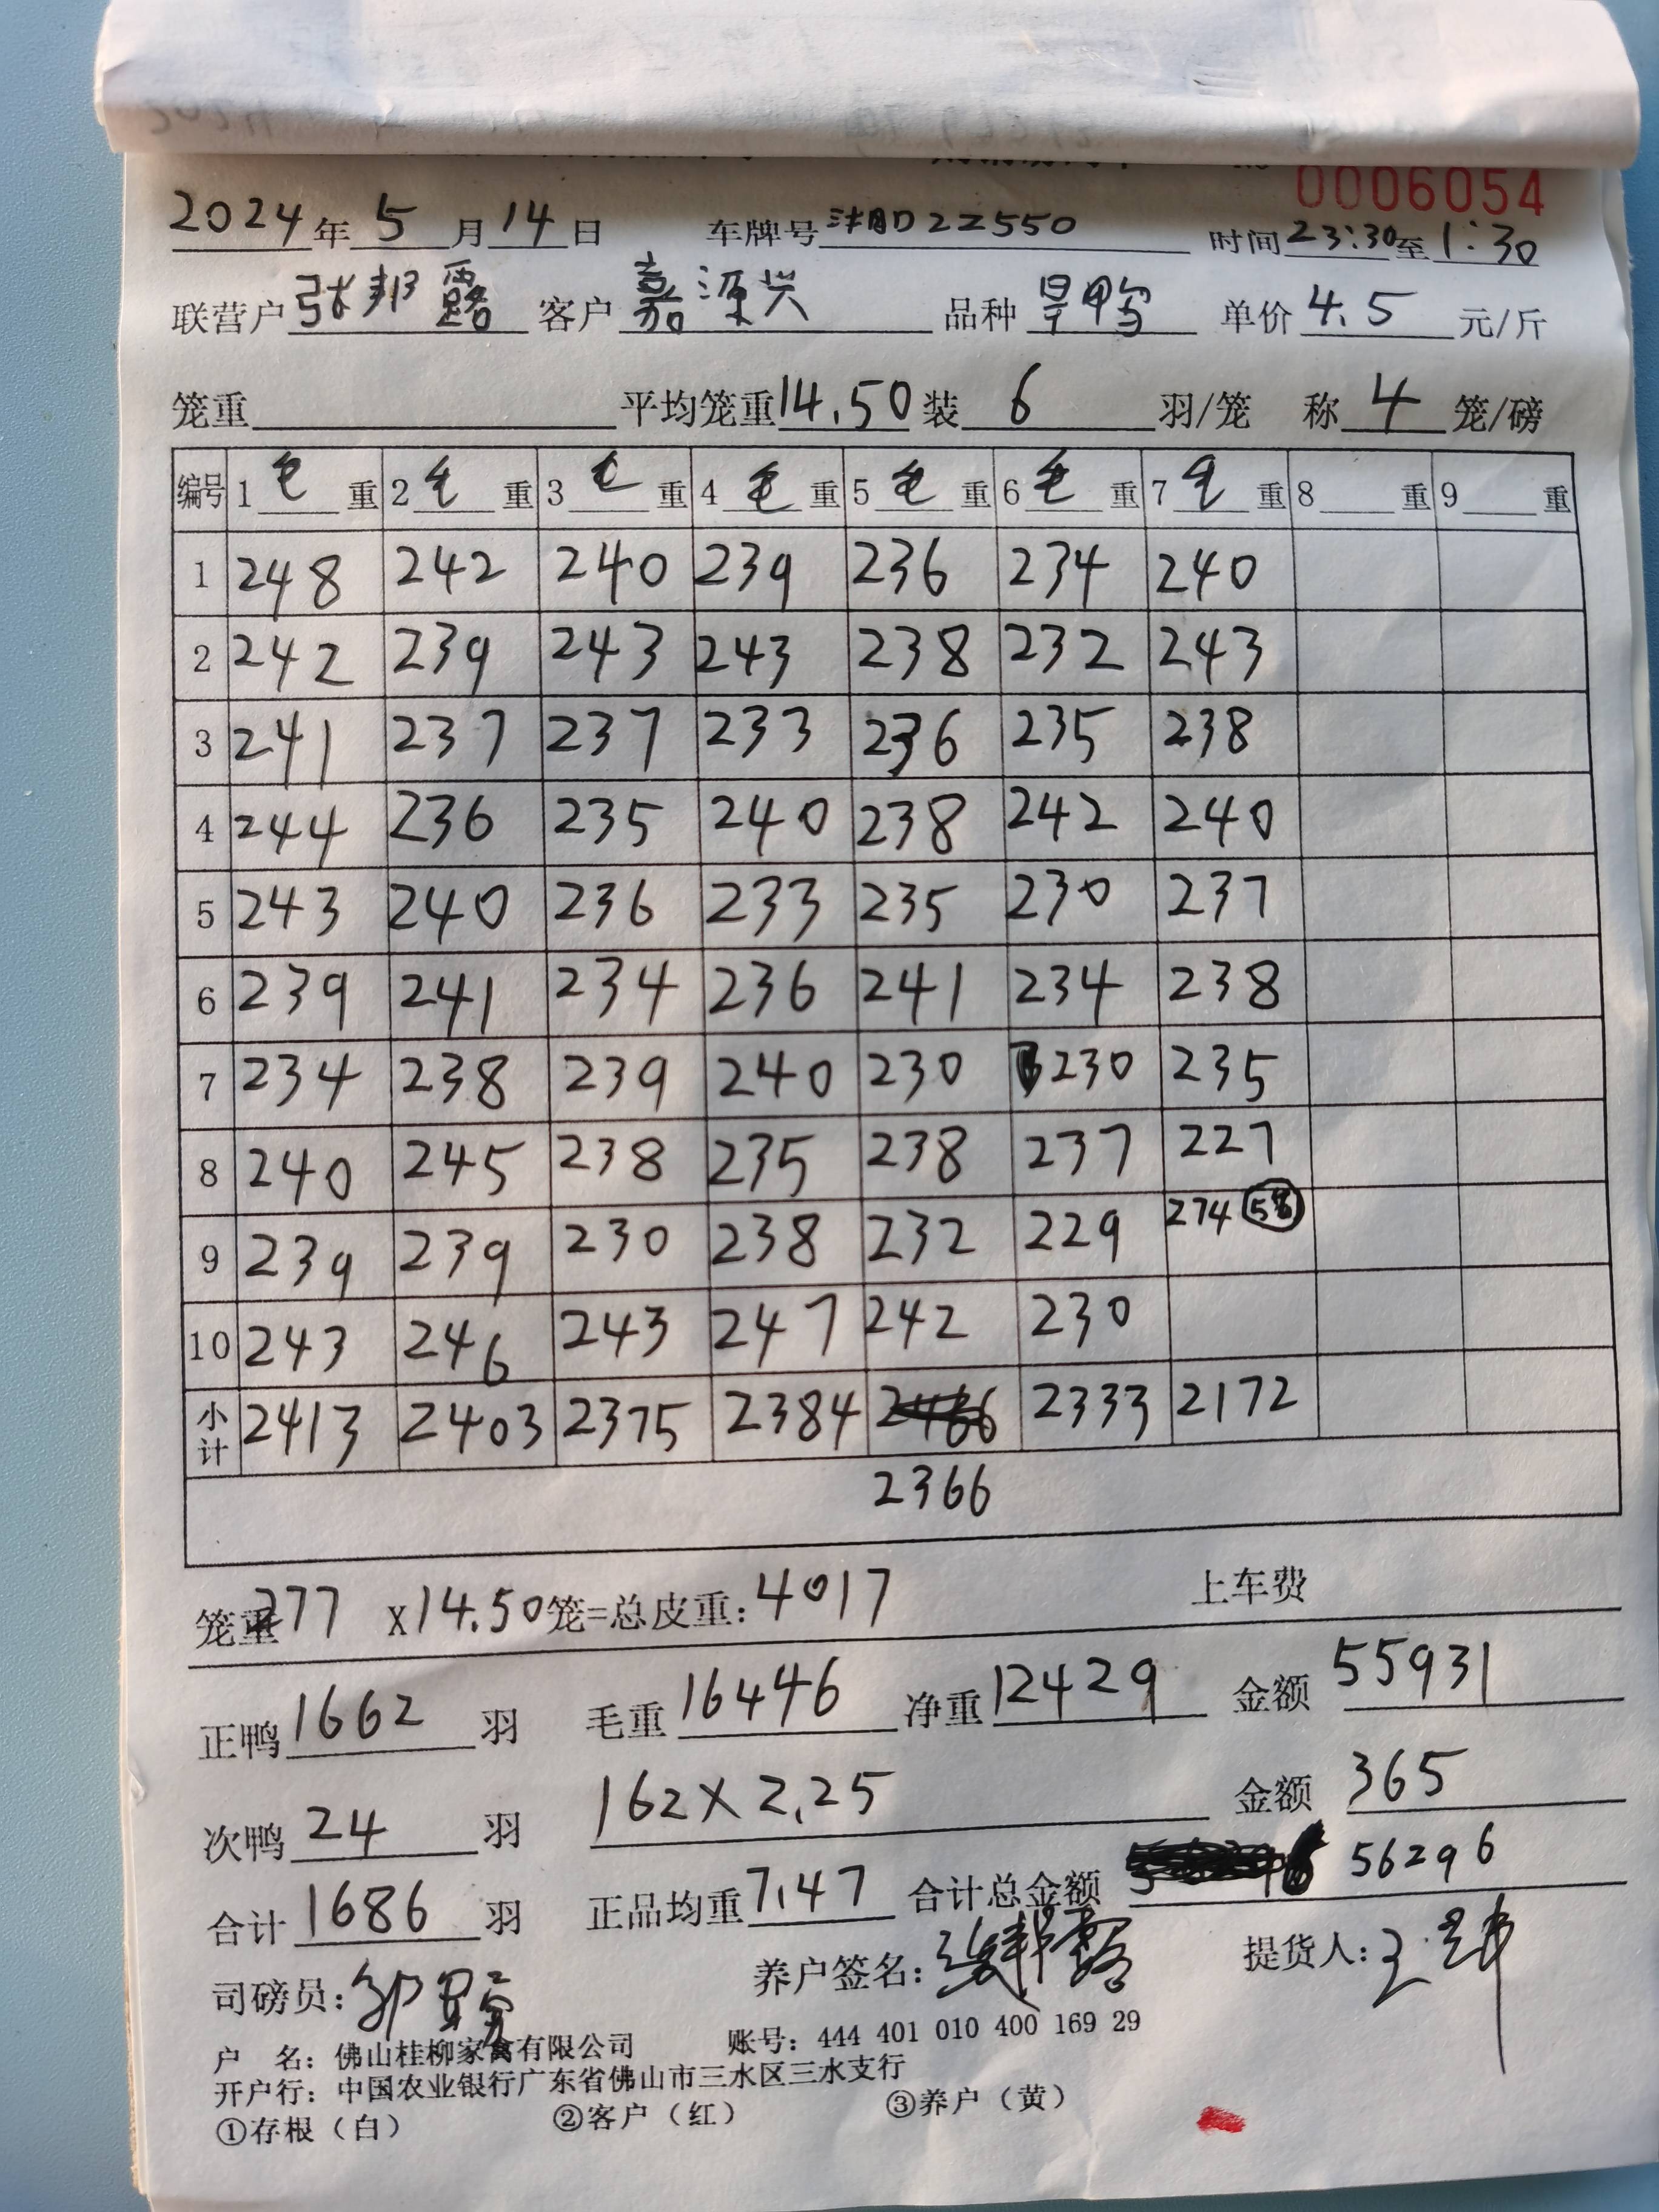 0006054
2024年5月14日 车牌号 22550 时间23:30至1:30
联营户张邦露 客户嘉源兴 品种旱鸭 单价4.5元/斤
笼重 平均笼重14.50装6羽/笼 称4笼/磅
编号 1毛重 2毛重 3毛重 4毛重 5毛重 6毛重 7毛重 8重 9重
1 248 242 240 239 236 234 240
2 242 239 243 243 238 232 243
3 241 237 237 233 236 235 238
4 244 236 235 240 238 242 240
5 243 240 236 233 235 230 237
6 239 241 234 236 241 234 238
7 234 238 239 240 230 230 235
8 240 245 238 235 238 237 227
9 239 239 230 238 232 229 274
10 243 246 243 247 242 230
小计 2413 2403 2375 2384 2333 2172
2366
笼重277 X14.50笼=总皮重:4017 上车费
正鸭1662羽 毛重16446 净重12429 金额55931
次鸭24羽 162×2.25 金额365
合计1686羽 正品均重7.47 合计总金额 56296
司磅员: 养户签名:张邦露 提货人:
户 名:佛山桂柳家禽有限公司 账号:444 401 010 400 169 29
开户行:中国农业银行广东省佛山市三水区三水支行
①存根（白） ②客户（红） ③养户（黄）